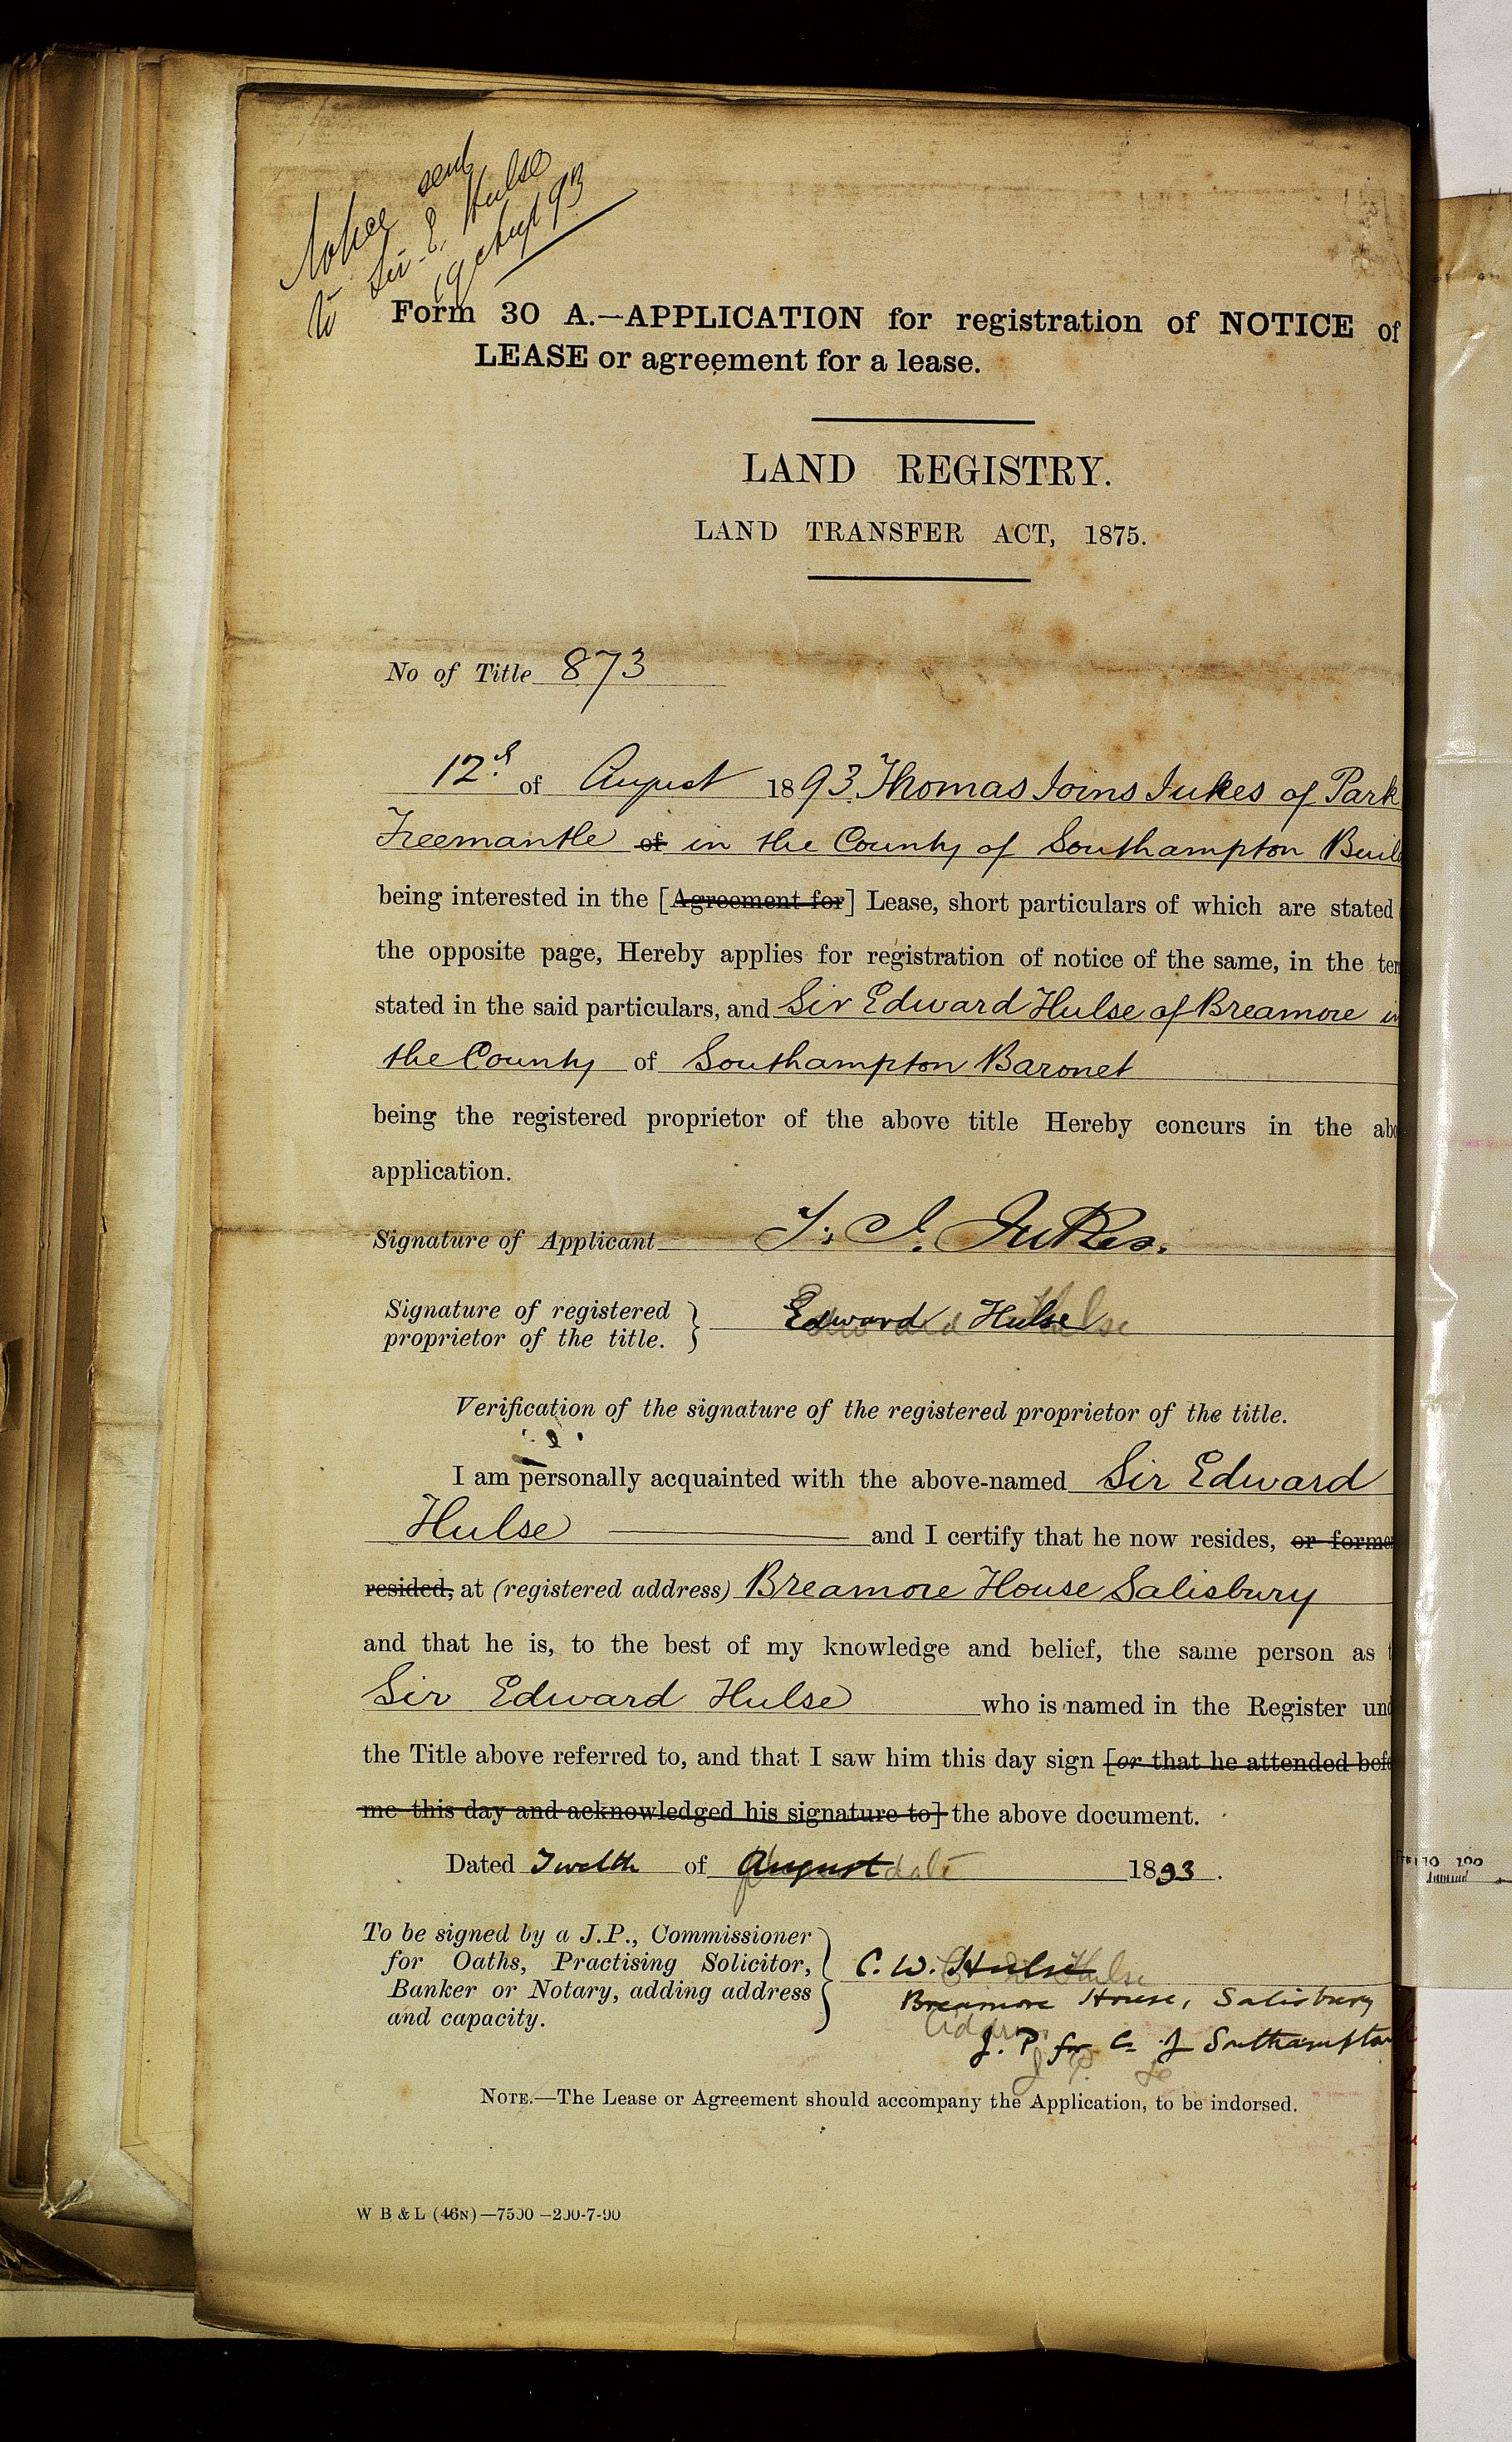 Notice sent
to Sir E. Hulse
19 Augt 93
Form 30 A.—APPLICATION for registration of NOTICE of
LEASE or agreement for a lease.
LAND REGISTRY.
LAND TRANSFER ACT, 1875.
No of Title 873
12th of August 1893 Thomas Joins Jukes of Park
Freemantle of in the County of Southampton Buil
being interested in the [Agreement for] Lease, short particulars of which are stated
the opposite page, Hereby applies for registration of notice of the same, in the ter
stated in the said particulars, and Sir Edward Hulse of Breamore in
the County of Southampton Baronet
being the registered proprietor of the above title Hereby concurs in the abo
application.
Signature of Applicant T. J. Jukes.
Signature of registered
proprietor of the title. } Edward Hulse
Verification of the signature of the registered proprietor of the title.
I am personally acquainted with the above-named Sir Edward
Hulse and I certify that he now resides, or former
resided, at (registered address) Breamore House Salisbury
and that he is, to the best of my knowledge and belief, the same person as t
Sir Edward Hulse who is named in the Register und
the Title above referred to, and that I saw him this day sign [or that he attended befo
me this day and acknowledged his signature to] the above document.
Dated Twelth of August date 1893.
To be signed by a J.P., Commissioner
for Oaths, Practising Solicitor,
Banker or Notary, adding address
and capacity.
C. W. Hulse
Breamore House, Salisbury
Address
J. P. for Co. of Southampton
NOTE.—The Lease or Agreement should accompany the Application, to be indorsed.
W B & L (46N)—7500—200-7-90